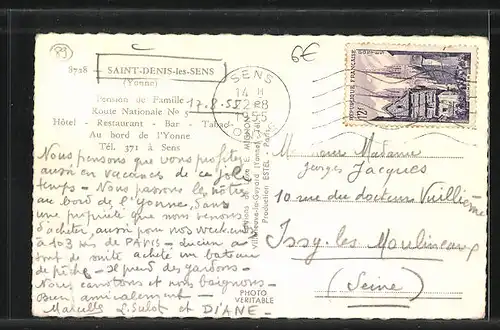 89
6€
8728 SAINT-DENIS-les-SENS
(Yonne)
Pension de Famille 17.8.55
Route Nationale No 5
Hôtel - Restaurant - Bar - Tabac
Au bord de l'Yonne
Tél. 371 à Sens
Nous pensons que vous profitez
aussi en vacances de ce joli
temps - Nous passons les nôtres
au bord de l'Yonne, dans
une propriété que nous venons
d'acheter, aussi pour nos weekend
à 103 kms de PARIS - Lucien a
tout de suite acheté un bateau
de pêche - il prend des gardons -
Nous canotons et nous baignons -
Bien amicalement -
Marcelle L. Sulot et DIANE -
Villeneuve-la-Guyard (Yonne)
Production ESTEL - Paris
PHOTO
VERITABLE
SENS
14 H
2-8
1955
REPUBLIQUE FRANÇAISE
POSTES
12F
Monsieur Madame
Georges Jacques
10 rue du docteur Vuillième
Issy-les-Moulineaux
(Seine)